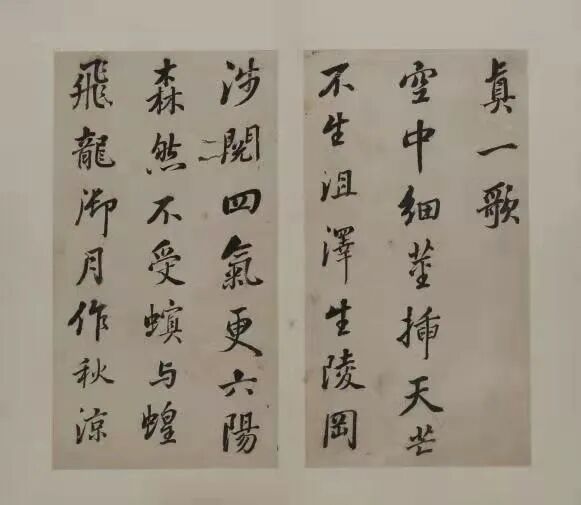 真一歌
空中細莖插天芒
不生沮澤生陵岡
涉閱四氣更六陽
森然不受螟与蝗
飛龍御月作秋涼